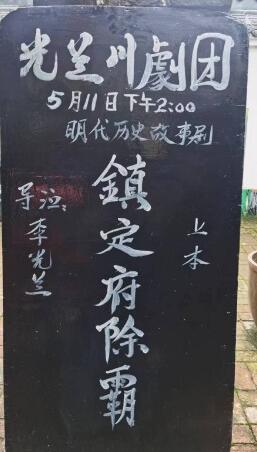 光兰川劇团
5月11日下午2:00
明代历史故事剧
鎮定府除霸
上本
导泣：李光兰